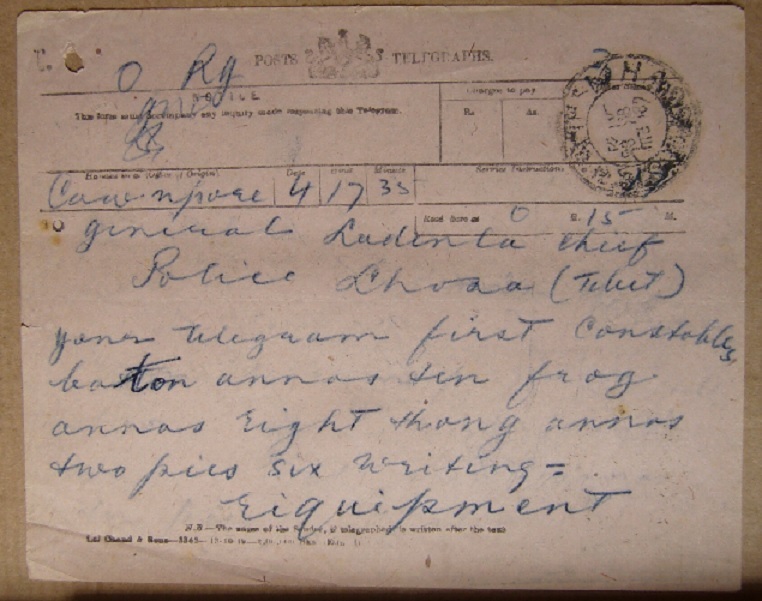 POSTS TELEGRAPHS.
O Rg
NOTICE
This form must accompany any inquiry made respecting this Telegram.
Charges to pay
R. As.
Office of Origin. Date Hour Minute Service Instructions
Cawnpore 4 17 35
H. 15 M.
general Ladenla chief
Police Lhasa (Tibet)
your telegram first constables
baton annas ten frog
annas eight thong annas
two pies six writing =
Eiquipment
N.B.—The name of the Sender, if telegraphed, is written after the text
Lal Chand & Sons—